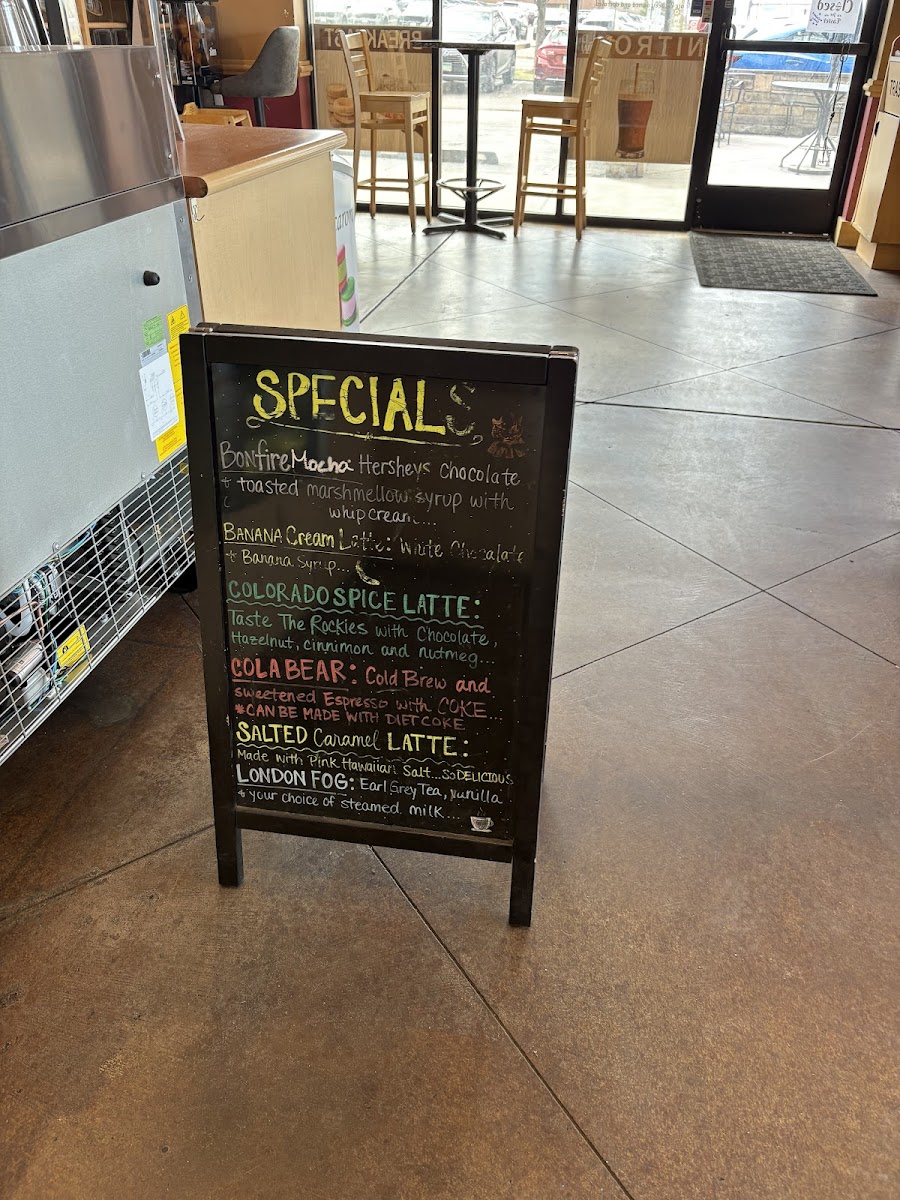 BREAKFAST
NITRO
Closed
TRAS
SPECIALS
Bonfire Mocha: Hersheys Chocolate
+ toasted marshmellow syrup with
whip cream...
BANANA Cream Latte: White Chocolate
+ Banana Syrup...
COLORADO SPICE LATTE:
Taste The Rockies with Chocolate,
Hazelnut, cinnimon and nutmeg...
COLA BEAR: Cold Brew and
sweetened Espresso with COKE...
*CAN BE MADE WITH DIET COKE
SALTED Caramel LATTE:
Made with Pink Hawaiian Salt...SO DELICIOUS
LONDON FOG: Earl Grey Tea, vanilla
+ your choice of steamed milk...